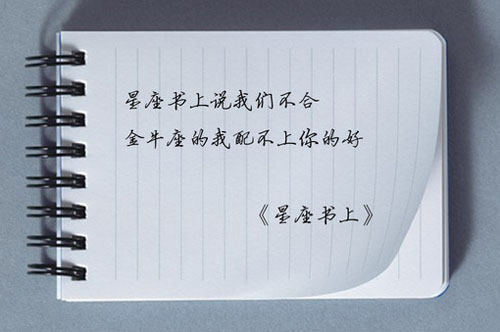 星座书上说我们不合
金牛座的我配不上你的好
《星座书上》